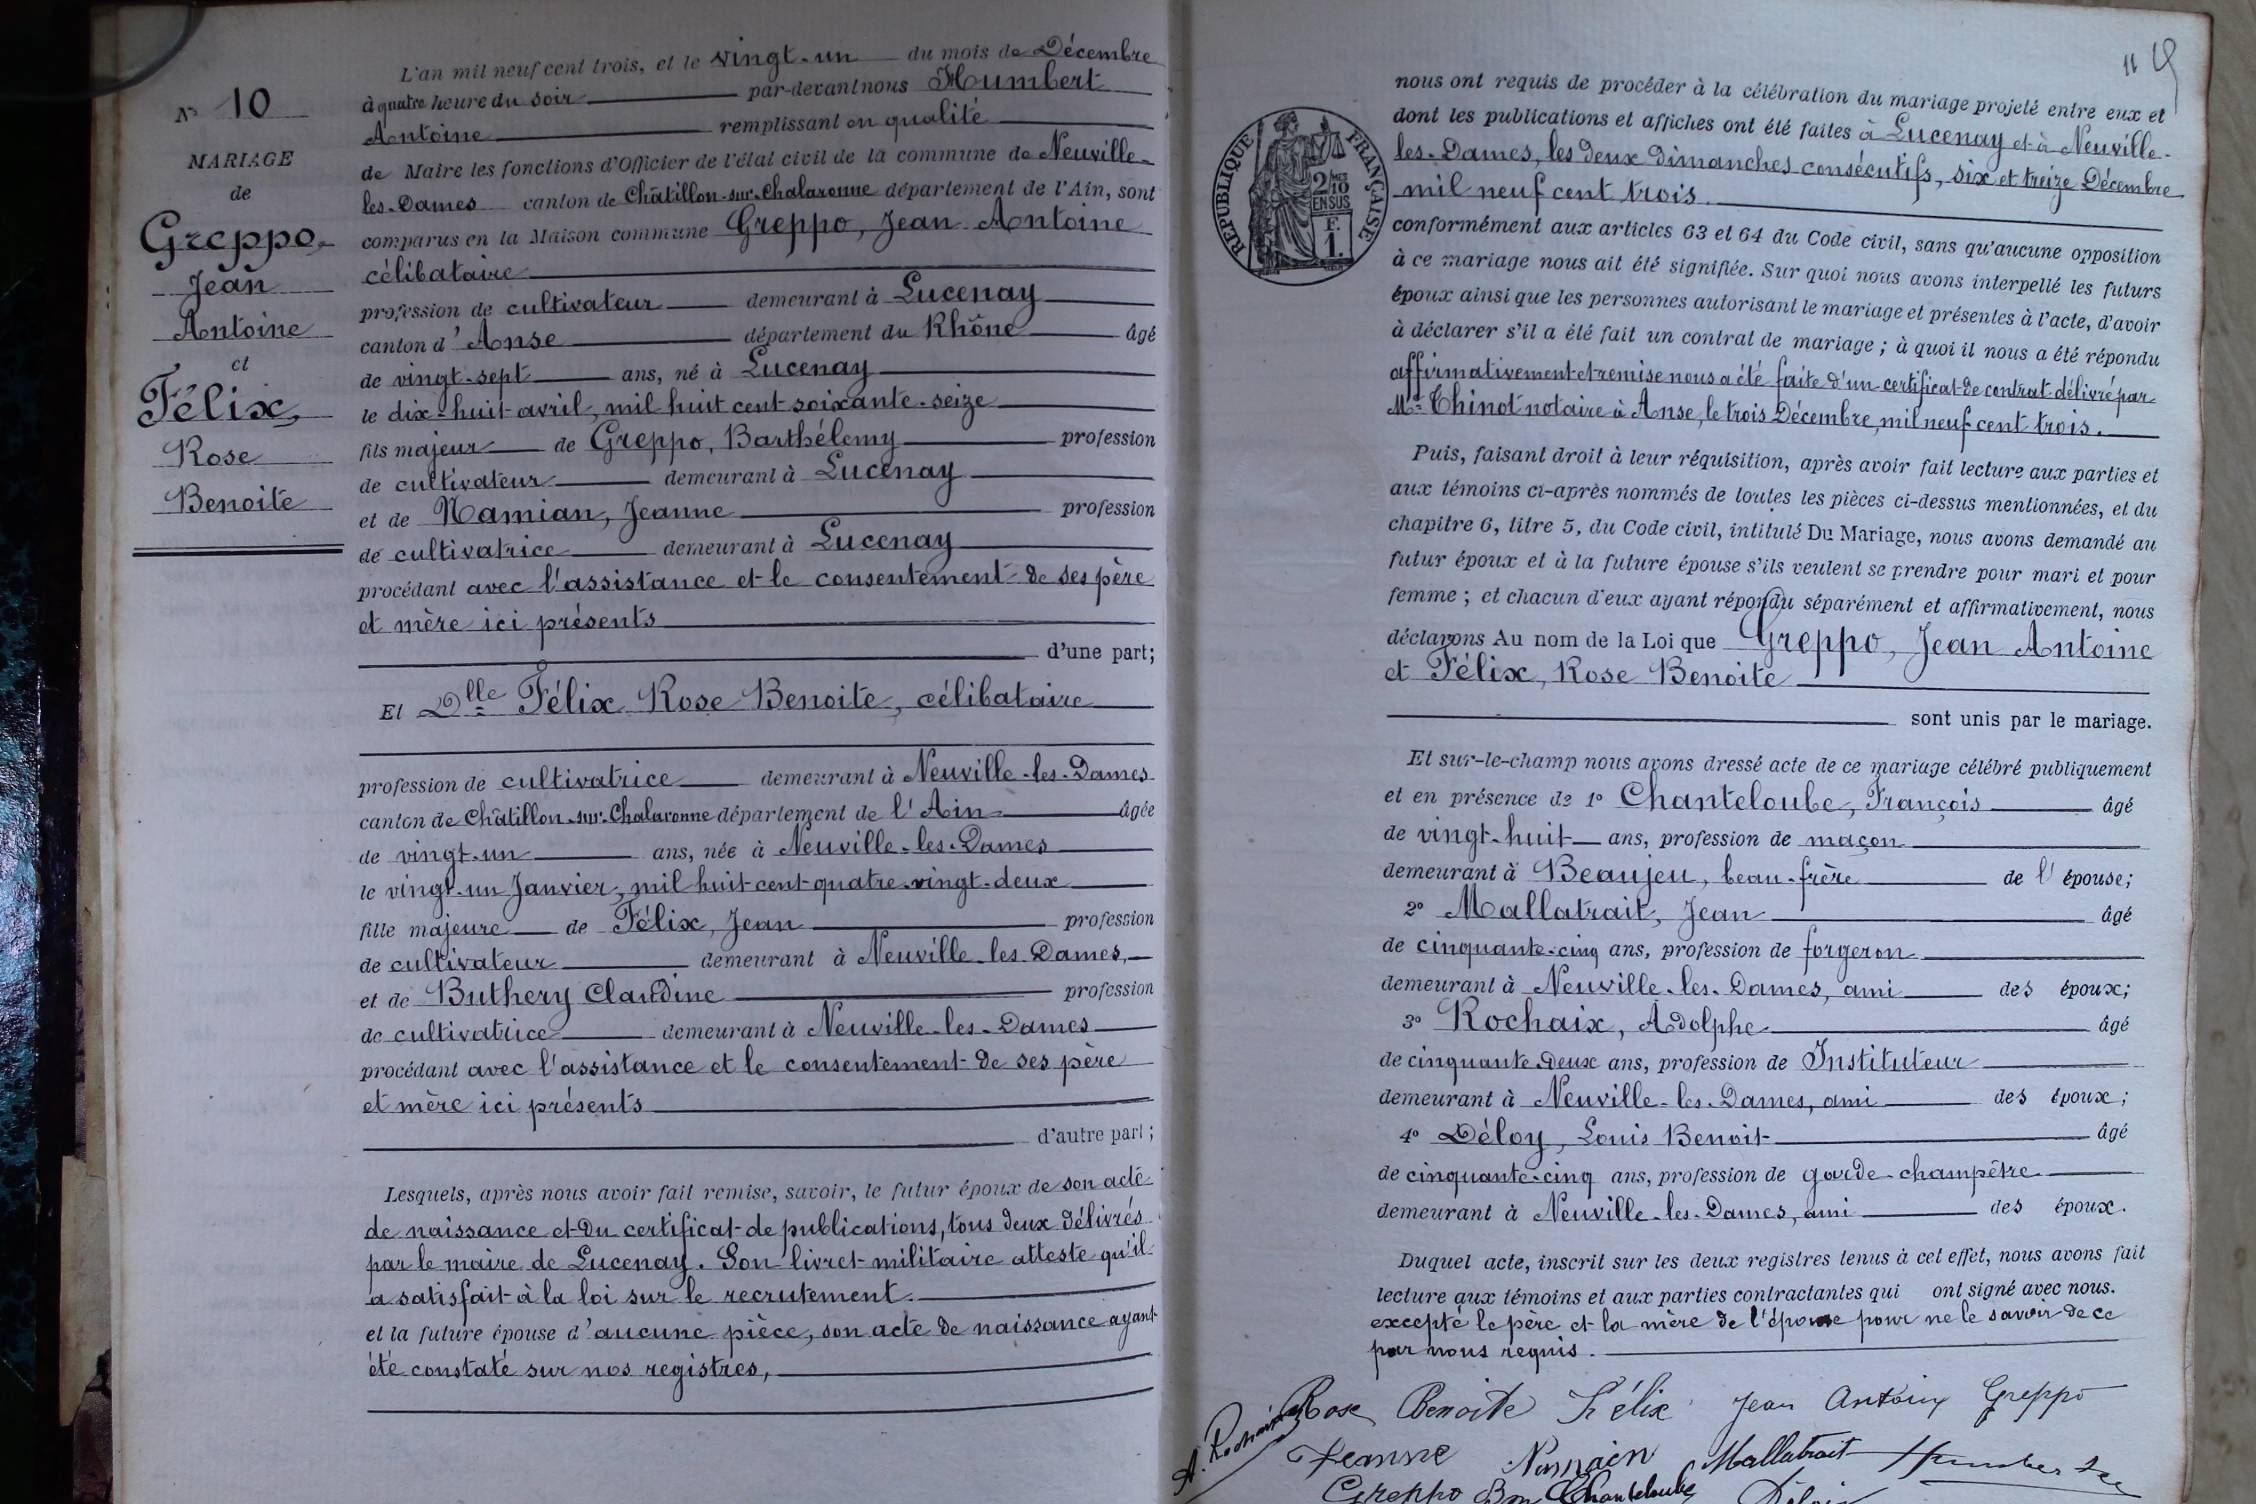 N° 10
MARIAGE
de
Greppo,
Jean
Antoine
et
Félix,
Rose
Benoite
L'an mil neuf cent trois, et le vingt-un du mois de Décembre
à quatre heure du soir par-devant nous Humbert
Antoine remplissant en qualité
de Maire les fonctions d'Officier de l'état civil de la commune de Neuville-
les-Dames canton de Châtillon-sur-Chalaronne département de l'Ain, sont
comparus en la Maison commune Greppo, Jean Antoine
célibataire
profession de cultivateur demeurant à Lucenay
canton d'Anse département du Rhône âgé
de vingt-sept ans, né à Lucenay
le dix-huit avril, mil huit cent soixante-seize
fils majeur de Greppo, Barthélemy profession
de cultivateur demeurant à Lucenay
et de Namian, Jeanne profession
de cultivatrice demeurant à Lucenay
procédant avec l'assistance et le consentement de ses père
et mère ici présents
d'une part;
Et Dlle Félix Rose Benoite, célibataire
profession de cultivatrice demeurant à Neuville-les-Dames
canton de Châtillon-sur-Chalaronne département de l'Ain âgée
de vingt-un ans, née à Neuville-les-Dames
le vingt-un Janvier, mil huit-cent-quatre-vingt-deux
fille majeure de Félix, Jean profession
de cultivateur demeurant à Neuville-les-Dames,
et de Buthery Claudine profession
de cultivatrice demeurant à Neuville-les-Dames
procédant avec l'assistance et le consentement de ses père
et mère ici présents
d'autre part;
Lesquels, après nous avoir fait remise, savoir, le futur époux de son acte
de naissance et du certificat de publications, tous deux délivrés
par le maire de Lucenay. Son livret militaire atteste qu'il
a satisfait à la loi sur le recrutement.
et la future épouse d'aucune pièce, son acte de naissance ayant
été constaté sur nos registres,
nous ont requis de procéder à la célébration du mariage projeté entre eux et
dont les publications et affiches ont été faites à Lucenay et à Neuville-
les-Dames, les deux dimanches consécutifs, six et treize Décembre
mil neuf cent trois.
RÉPUBLIQUE FRANÇAISE
2/10
EN SUS
F.
1.
conformément aux articles 63 et 64 du Code civil, sans qu'aucune opposition
à ce mariage nous ait été signifiée. Sur quoi nous avons interpellé les futurs
époux ainsi que les personnes autorisant le mariage et présentes à l'acte, d'avoir
à déclarer s'il a été fait un contrat de mariage; à quoi il nous a été répondu
affirmativement et remise nous a été faite d'un certificat de contrat délivré par
Me Thinot notaire à Anse, le trois Décembre, mil neuf cent trois.
Puis, faisant droit à leur réquisition, après avoir fait lecture aux parties et
aux témoins ci-après nommés de toutes les pièces ci-dessus mentionnées, et du
chapitre 6, titre 5, du Code civil, intitulé Du Mariage, nous avons demandé au
futur époux et à la future épouse s'ils veulent se prendre pour mari et pour
femme; et chacun d'eux ayant répondu séparément et affirmativement, nous
déclarons Au nom de la Loi que Greppo, Jean Antoine
et Félix, Rose Benoite
sont unis par le mariage.
Et sur-le-champ nous avons dressé acte de ce mariage célébré publiquement
et en présence de 1° Chanteloube, François âgé
de vingt-huit ans, profession de maçon
demeurant à Beaujeu, beau-frère de l'épouse;
2° Mallatrait, Jean âgé
de cinquante-cinq ans, profession de forgeron
demeurant à Neuville-les-Dames, ami des époux;
3° Rochaix, Adolphe âgé
de cinquante-deux ans, profession de Instituteur
demeurant à Neuville-les-Dames, ami des époux;
4° Déloy, Louis Benoit âgé
de cinquante-cinq ans, profession de garde-champêtre
demeurant à Neuville-les-Dames, ami des époux.
Duquel acte, inscrit sur les deux registres tenus à cet effet, nous avons fait
lecture aux témoins et aux parties contractantes qui ont signé avec nous.
excepté le père et la mère de l'épouse pour ne le savoir de ce
par nous requis.
Rose Benoite Félix Jean Antoine Greppo
A. Rochaix Jeanne Mallatrait Humbert
Greppo Chanteloube